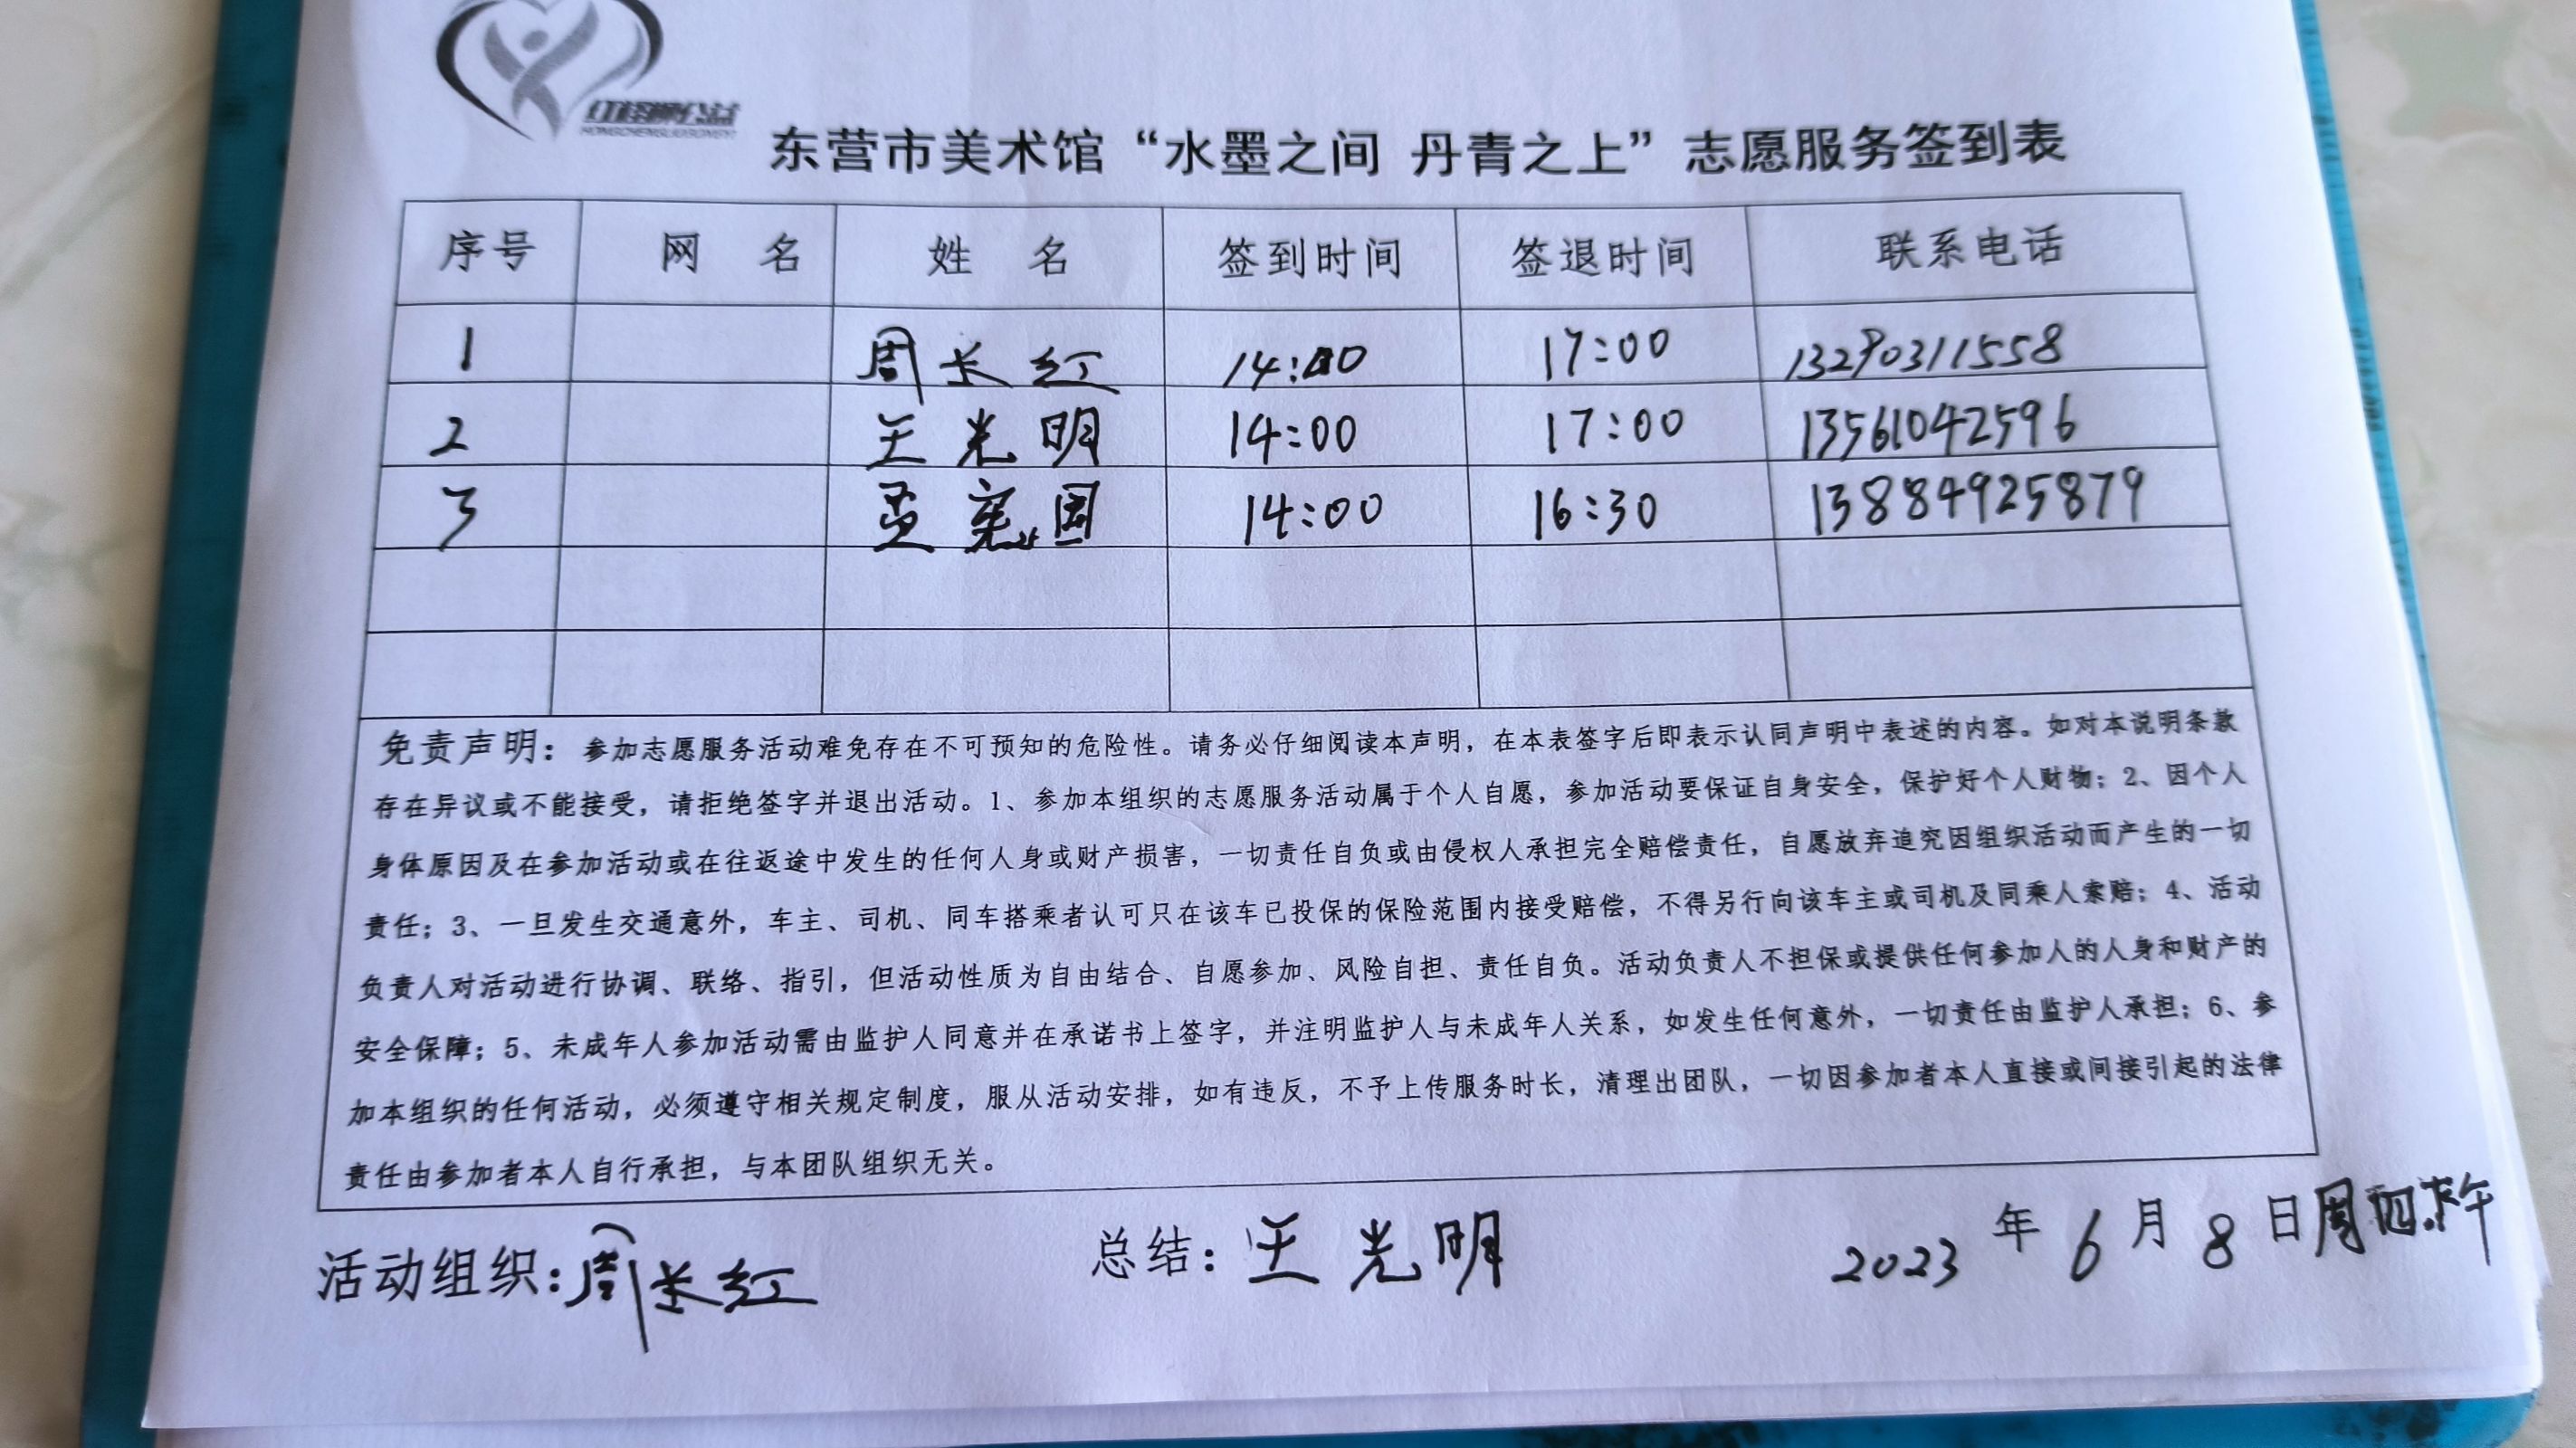 红柽柳公益
东营市美术馆“水墨之间 丹青之上”志愿服务签到表
序号 网 名 姓 名 签到时间 签退时间 联系电话
1 周长红 14:00 17:00 13290311558
2 王光明 14:00 17:00 13561042596
3 孟宪国 14:00 16:30 13884925879
免责声明：参加志愿服务活动难免存在不可预知的危险性。请务必仔细阅读本声明，在本表签字后即表示认同声明中表述的内容。如对本说明条款
存在异议或不能接受，请拒绝签字并退出活动。1、参加本组织的志愿服务活动属于个人自愿，参加活动要保证自身安全，保护好个人财物；2、因个人
身体原因及在参加活动或在往返途中发生的任何人身或财产损害，一切责任自负或由侵权人承担完全赔偿责任，自愿放弃追究因组织活动而产生的一切
责任；3、一旦发生交通意外，车主、司机、同车搭乘者认可只在该车已投保的保险范围内接受赔偿，不得另行向该车主或司机及同乘人索赔；4、活动
负责人对活动进行协调、联络、指引，但活动性质为自由结合、自愿参加、风险自担、责任自负。活动负责人不担保或提供任何参加人的人身和财产的
安全保障；5、未成年人参加活动需由监护人同意并在承诺书上签字，并注明监护人与未成年人关系，如发生任何意外，一切责任由监护人承担；6、参
加本组织的任何活动，必须遵守相关规定制度，服从活动安排，如有违反，不予上传服务时长，清理出团队，一切因参加者本人直接或间接引起的法律
责任由参加者本人自行承担，与本团队组织无关。
活动组织：周长红 总结：王光明 2023年6月8日周四下午